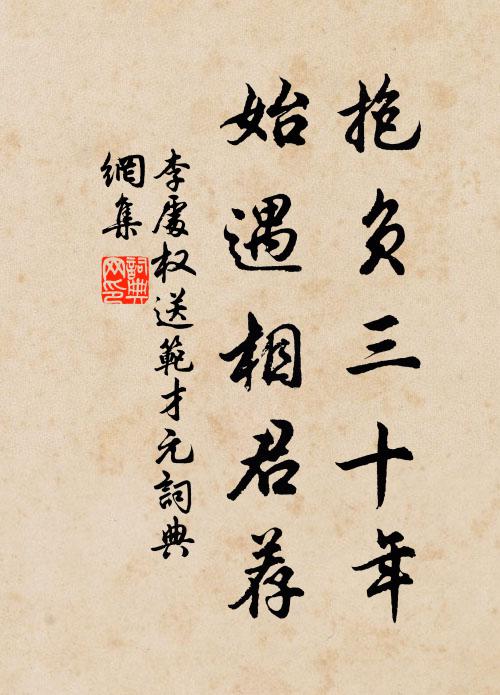 抱负三十年
始遇相君荐
李處权送範才元詞典
網集
詞典
网印